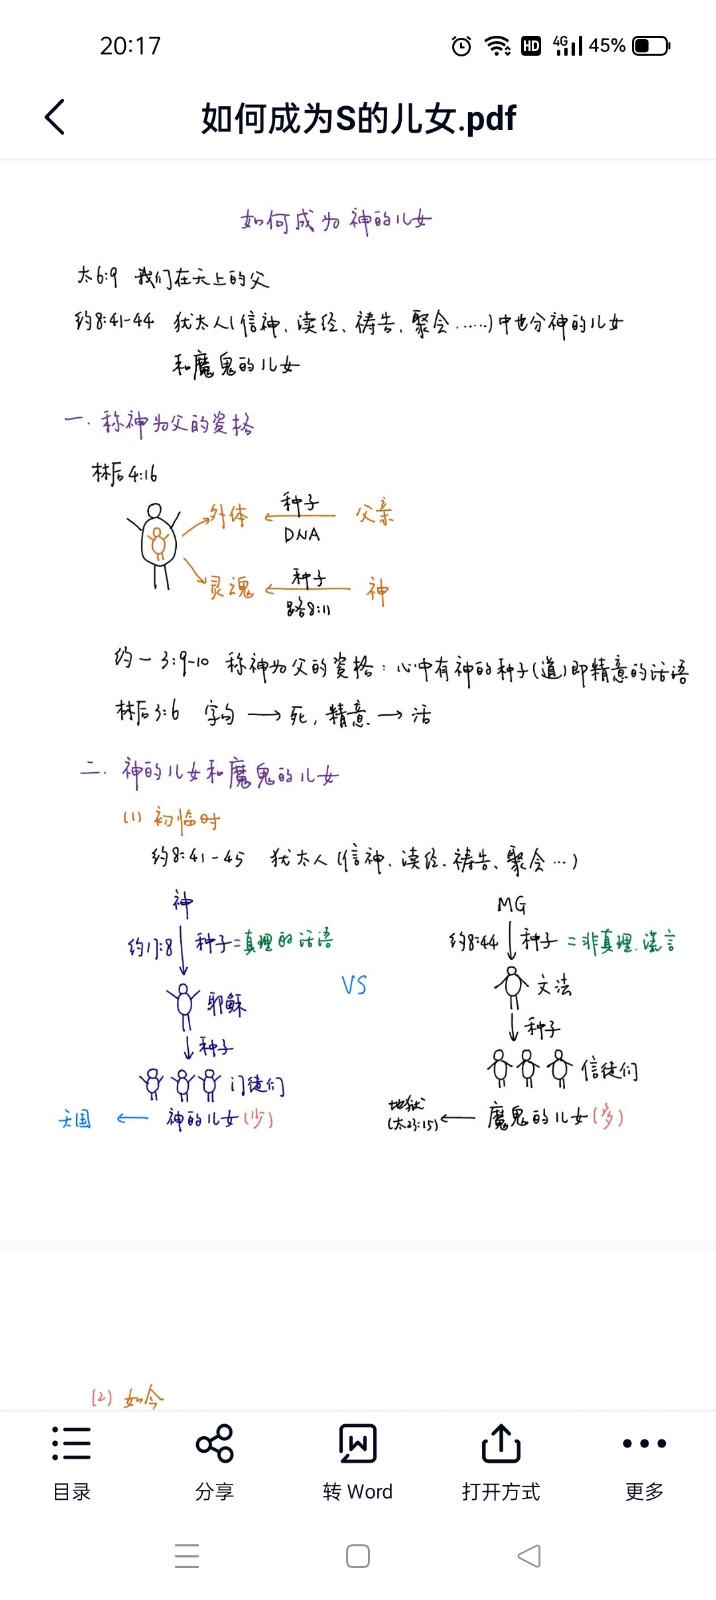 20:17 HD 4G 45%
如何成为S的儿女.pdf
如何成为神的儿女
太6:9 我们在天上的父
约8:41-44 犹太人(信神、读经、祷告、聚会……)中也分神的儿女
和魔鬼的儿女
一. 称神为父的资格
林后4:16
外体 种子 DNA 父亲
灵魂 种子 路8:11 神
约一3:9-10 称神为父的资格：心中有神的种子(道)即精意的话语
林后3:6 字句 → 死, 精意 → 活
二. 神的儿女和魔鬼的儿女
(1) 初临时
约8:41-45 犹太人(信神、读经、祷告、聚会…)
神 MG
约17:8 种子=真理的话语 约8:44 种子=非真理.谎言
耶稣 VS 文法
种子 种子
门徒们 信徒们
天国 ← 神的儿女(少) 地狱(太23:15) ← 魔鬼的儿女(多)
(2) 如今
目录 分享 转 Word 打开方式 更多